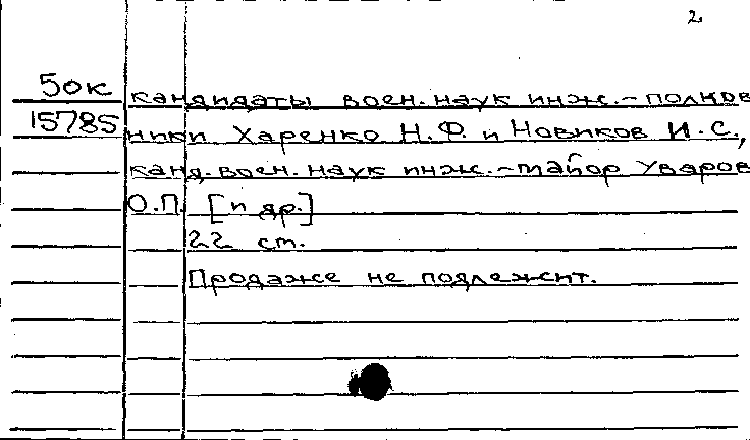 2
50к кандидаты воен. наук инж.-полков
15785 ники Харенко Н.Ф. и Новиков И.С.,
канд. воен. наук инж.-майор Уваров
О.П. [и др.]
22 cm.
Продаже не подлежит.